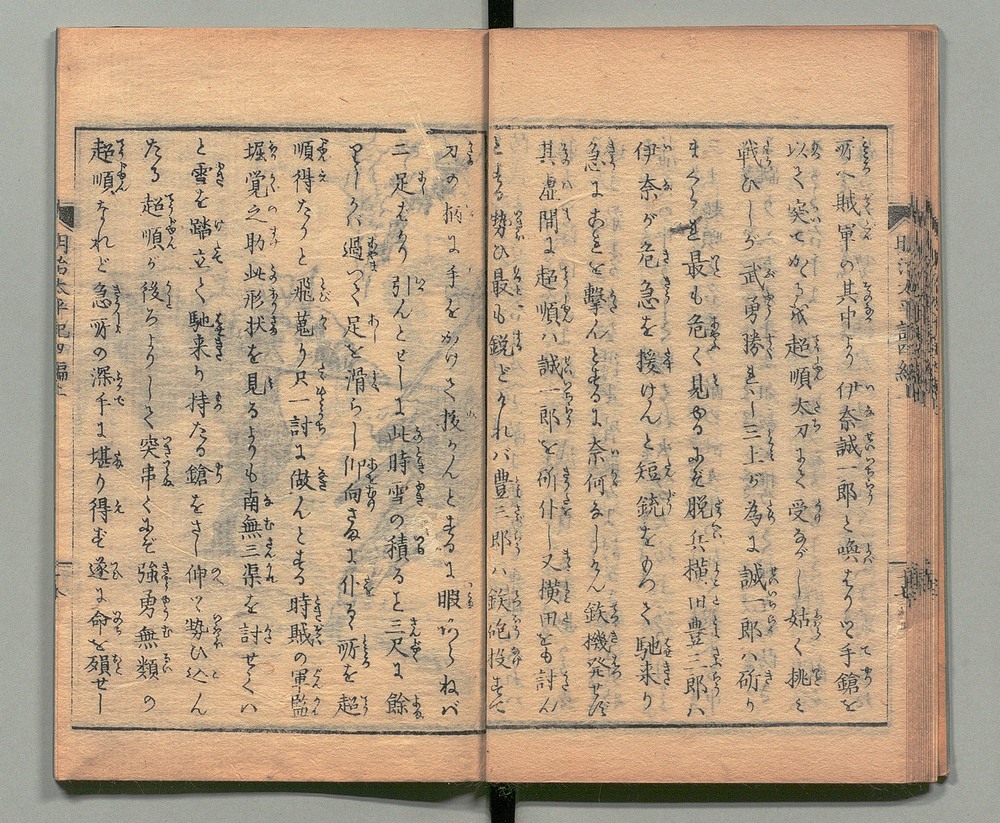 所へ賊軍の其中より伊奈誠一郎と喚はりつ手鎗を
以て突てかゝるを超順大刀にて受ながし姑く挑み
戦ひしが武勇勝れし三上が為に誠一郎ハ斫り
まくられ最も危く見ゆるにぞ脱兵横田豊三郎ハ
伊奈が危急を援けんと短銃をもつて馳来り
急にあれを撃んとするに奈何なしけん鉄機発せず
其虚間に超順ハ誠一郎を斫仆し又横田をも討ん
とする勢ひ最も鋭どければ豊三郎ハ鉄砲投すて
刀の柄に手をかけて抜かんとするに暇あらねバ
二足ばかり引んとせしに此時雪の積ると三尺に餘
りしかバ過つて足を滑らし仰向さまに仆るゝ所を超
順得たりと飛蒐り只一討に做んとする時賊の軍監
堀覚之助此形状を見るよりも南無三渠を討せてハ
と雪を踏立て馳来り持たる鎗をさし伸つ勢ひ込ん
たる超順が後ろよりして突串くにぞ強勇無類の
超順なれど急所の深手に堪り得ず遂に命を殞せし
明治太平記四編上